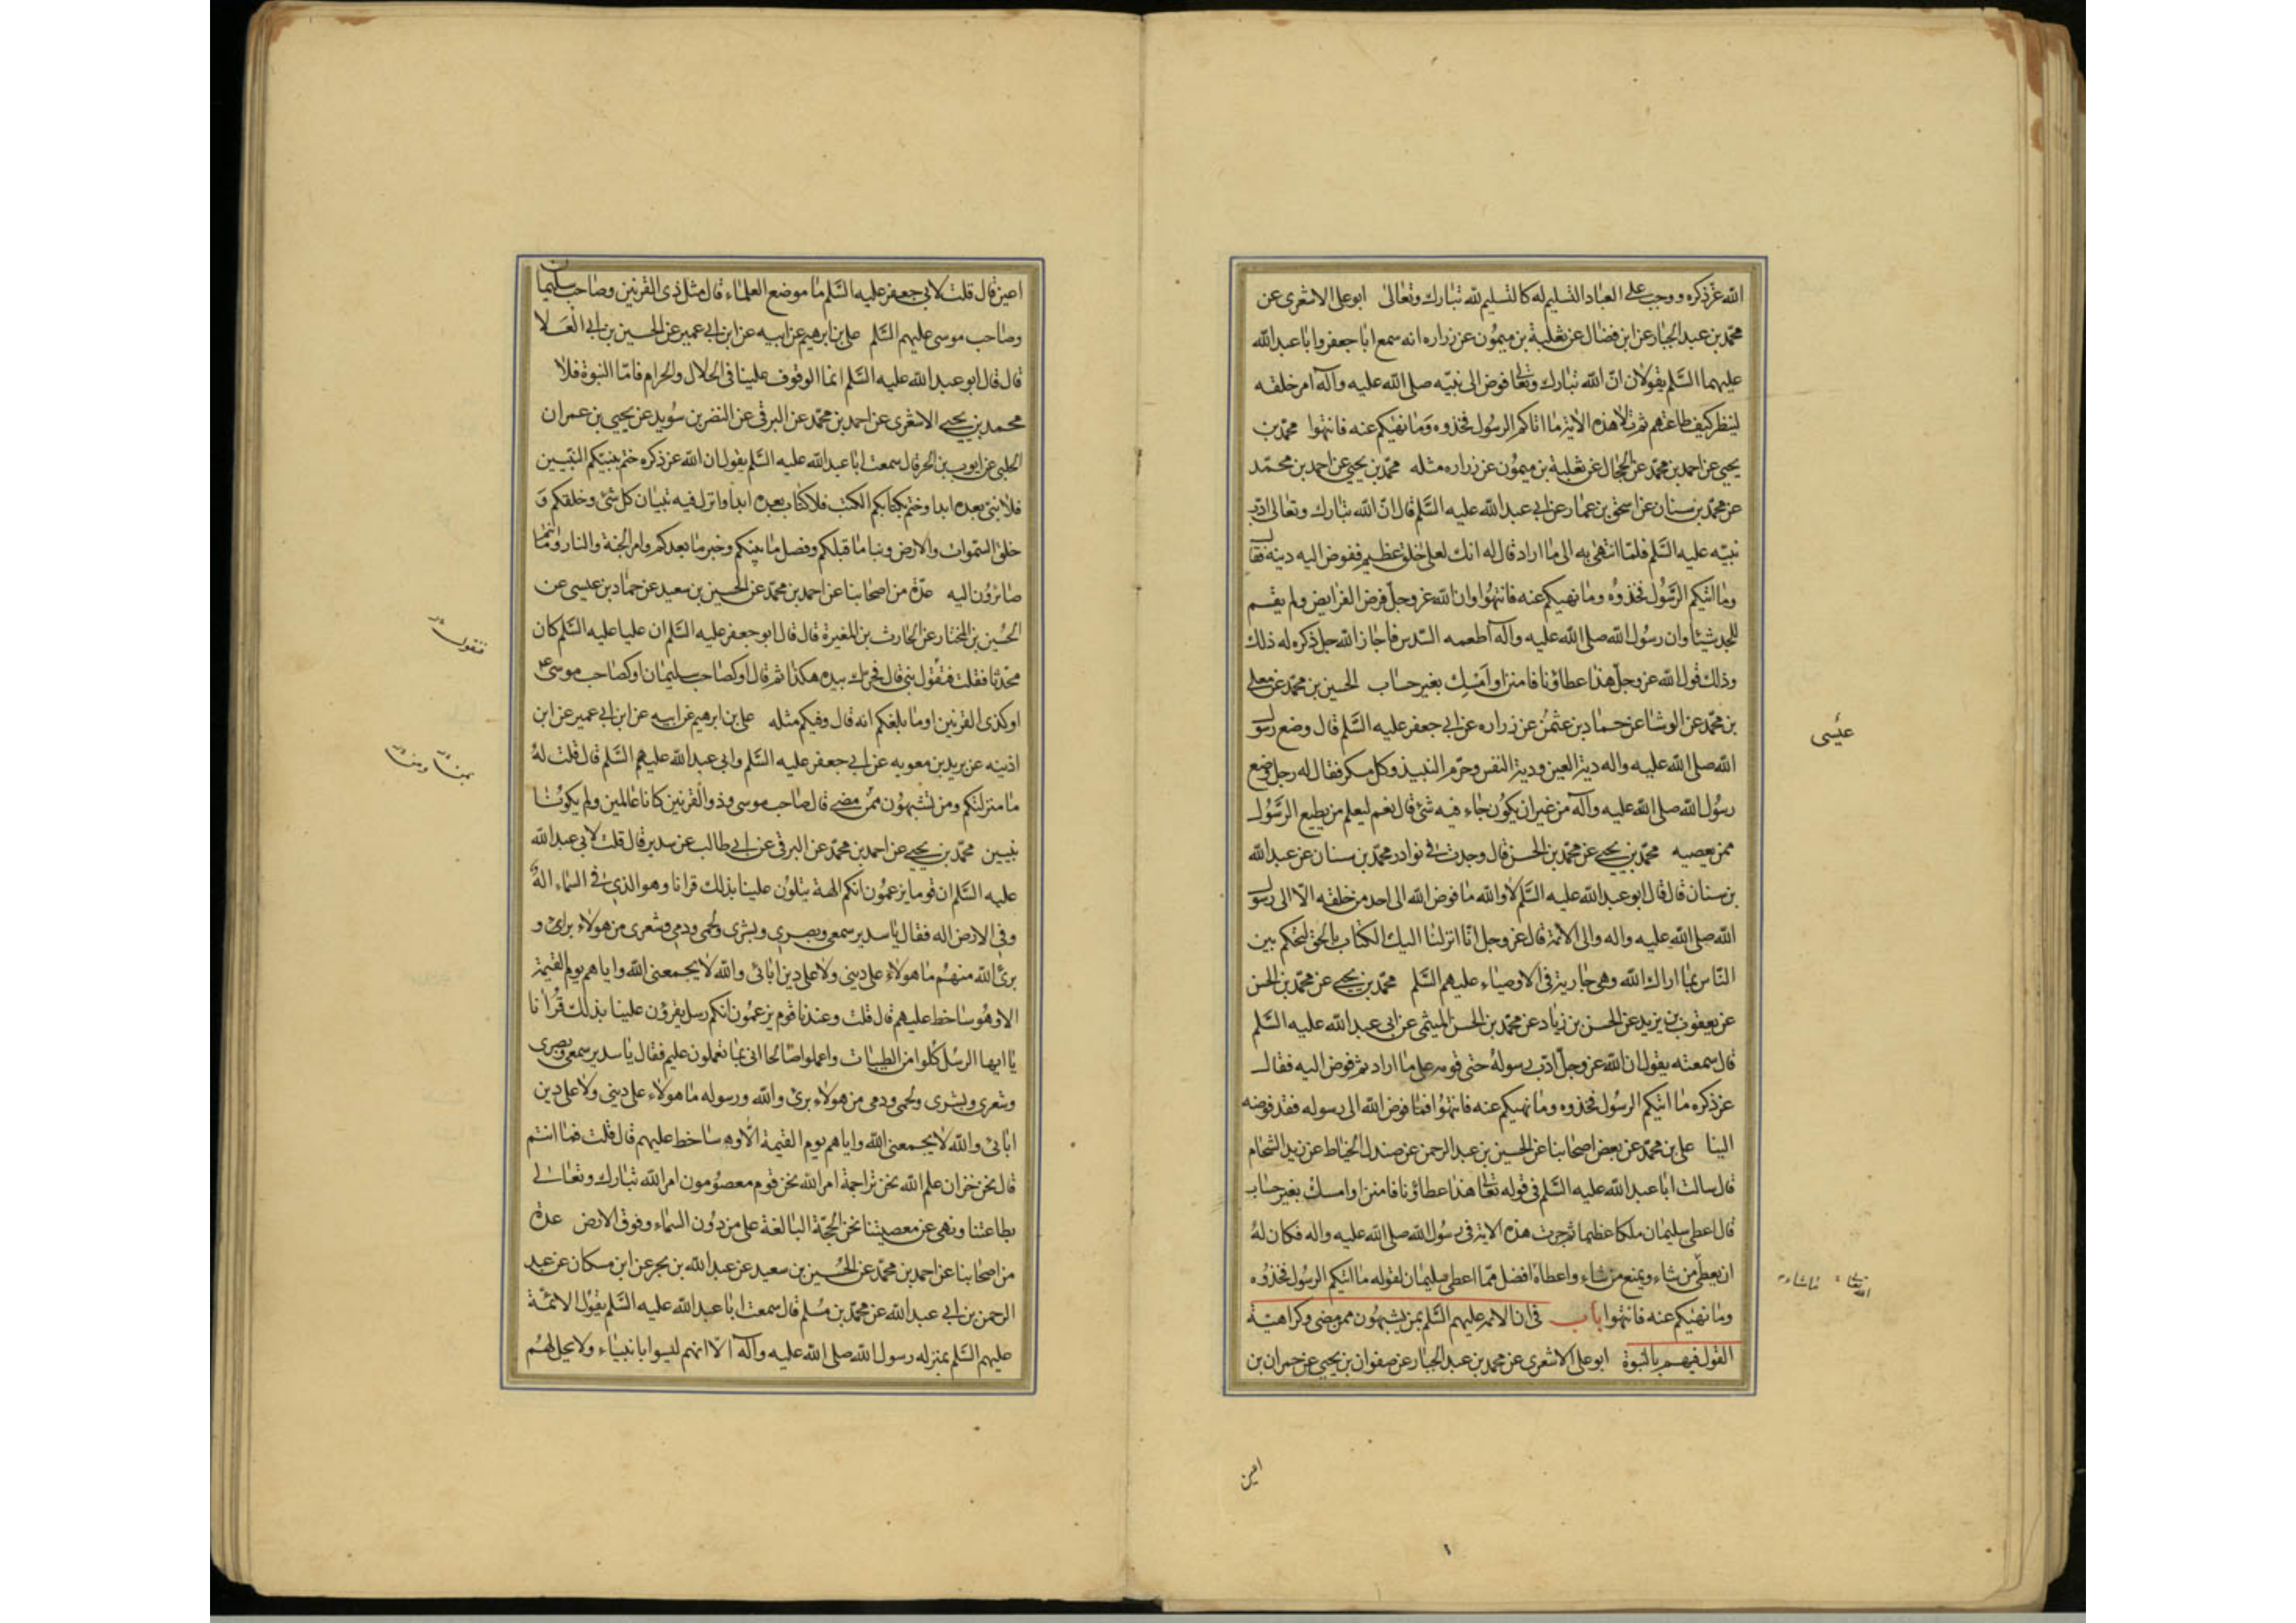 الله عز ذكره ووجب على العباد التسليم له كالتسليم لله تبارك وتعالى ابو على الاشعرى عن
محمد بن عبد الجبار عن ابن فضال عن ثعلبة بن ميمون عن زراره انه سمع ابا جعفر وابا عبد الله
عليهما السلم يقولان ان الله تبارك وتعالى فوض الى نبيه صلى الله عليه وآله امر خلقه
لينظر كيف طاعتهم ثم تلا هذه الاية ما اتاكم الرسول فخذوه وما نهيكم عنه فانتهوا محمد بن
يحيى عن احمد بن محمد عن الحجال عن ثعلبة بن ميمون عن زراره مثله محمد بن يحيى عن احمد بن محمد
عن محمد بن سنان عن اسحق بن عمار عن ابى عبد الله عليه السلم قال ان الله تبارك وتعالى ادب
نبيه عليه السلم فلما انتهى به الى ما اراد قال له انك لعلى خلق عظيم ففوض اليه دينه فقال
وما اتيكم الرسول فخذوه وما نهيكم عنه فانتهوا وان الله عز وجل فرض الفرايض ولم يقسم
للجد شيئا وان رسول الله صلى الله عليه وآله اطعمه السدس فاجاز الله جل ذكره له ذلك
وذلك قول الله عز وجل هذا عطاؤنا فامنن او امسك بغير حساب الحسين بن محمد عن معلى
بن محمد عن الوشا عن حماد بن عثمن عن زراره عن ابى جعفر عليه السلم قال وضع رسول
الله صلى الله عليه واله دية العين ودية النفس وحرم النبيذ وكل مسكر فقال له رجل وضع
رسول الله صلى الله عليه وآله من غير ان يكون جاء فيه شئ قال نعم ليعلم من يطيع الرسول
ممن يعصيه محمد بن يحيى عن محمد بن الحسن قال وجدت فى نوادر محمد بن سنان عن عبد الله
بن سنان قال قال ابو عبد الله عليه السلم لا والله ما فوض الله الى احد من خلقه الا الى رسول
الله صلى الله عليه واله والى الائمة قال عز وجل انا انزلنا اليك الكتاب بالحق لتحكم بين
الناس بما اراك الله وهى جارية فى الاوصياء عليهم السلم محمد بن يحيى عن محمد بن الحسن
عن يعقوب بن يزيد عن الحسن بن زياد عن محمد بن الحسن الميثمى عن ابى عبد الله عليه السلم
قال سمعته يقول ان الله عز وجل ادب رسوله حتى قومه على ما اراد ثم فوض اليه فقال
عز ذكره ما اتيكم الرسول فخذوه وما نهيكم عنه فانتهوا فما فوض الله الى رسوله فقد فوضه
الينا على بن محمد عن بعض اصحابنا عن الحسين بن عبد الرحمن عن صندل الخياط عن زيد الشحام
قال سالت ابا عبد الله عليه السلم فى قوله تعالى هذا عطاؤنا فامنن او امسك بغير حساب
قال اعطى سليمان ملكا عظيما ثم جرت هذه الاية فى رسول الله صلى الله عليه واله فكان له
ان يعطى من شاء ويمنع من شاء واعطاه افضل مما اعطى سليمان لقوله ما اتيكم الرسول فخذوه
وما نهيكم عنه فانتهوا باب فى ان الائمه عليهم السلم بمن يشبهون ممن مضى وكراهية
القول فيهم بالنبوة ابو على الاشعرى عن محمد بن عبد الجبار عن صفوان بن يحيى عن حمران بن
عيسى
ما شاء
اعين
اعين قال قلت لابى جعفر عليه السلم ما موضع العلماء قال مثل ذى القرنين وصاحب سليمان
وصاحب موسى عليهم السلم على بن ابرهيم عن ابيه عن ابن ابى عمير عن الحسين بن ابى العلا
قال قال ابو عبد الله عليه السلم انما الوقوف علينا فى الحلال والحرام فاما النبوة فلا
محمد بن يحيى الاشعرى عن احمد بن محمد عن البرقى عن النضر بن سويد عن يحيى بن عمران
الحلبى عن ايوب بن الحر قال سمعت ابا عبد الله عليه السلم يقول ان الله عز ذكره ختم بنبيكم النبيين
فلا نبى بعده ابدا وختم بكتابكم الكتب فلا كتاب بعده ابدا وانزل فيه تبيان كل شئ وخلقكم و
خلق السموات والارض ونبا ما قبلكم وفصل ما بينكم وخبر ما بعدكم وامر الجنة والنار وما انتم
صائرون اليه عدة من اصحابنا عن احمد بن محمد عن الحسين بن سعيد عن حماد بن عيسى عن
الحسين بن المختار عن الحارث بن المغيرة قال قال ابو جعفر عليه السلم ان عليا عليه السلم كان
محدثا فقلت فتقول نبى قال فحرك بيده هكذا ثم قال او كصاحب سليمان او كصاحب موسى
او كذى القرنين اوما بلغكم انه قال وفيكم مثله على بن ابرهيم عن ابيه عن ابن ابى عمير عن ابن
اذينه عن بريد بن معويه عن ابى جعفر عليه السلم وابى عبد الله عليهم السلم قال قلت له
ما منزلتكم ومن تشبهون ممن مضى قال صاحب موسى وذو القرنين كانا عالمين ولم يكونا
نبيين محمد بن يحيى عن احمد بن محمد عن البرقى عن ابى طالب عن سدير قال قلت لابى عبد الله
عليه السلم ان قوما يزعمون انكم الهة يتلون علينا بذلك قرانا وهو الذى فى السماء اله
وفى الارض اله فقال يا سدير سمعى وبصرى وبشرى ولحمى ودمى وشعرى من هولاء برئ و
برئ الله منهم ما هولاء على دينى ولا على دين ابائى والله لا يجمعنى الله واياهم يوم القيمة
الا وهو ساخط عليهم قال قلت وعندنا قوم يزعمون انكم رسل يقرؤن علينا بذلك قرانا
يا ايها الرسل كلوا من الطيبات واعملوا صالحا انى بما تعملون عليم فقال يا سدير سمعى وبصرى
وشعرى وبشرى ولحمى ودمى من هولاء برئ والله ورسوله ما هولاء على دينى ولا على دين
ابائى والله لا يجمعنى الله واياهم يوم القيمة الا وهو ساخط عليهم قال قلت فما انتم
قال نحن خزان علم الله نحن تراجمة امر الله نحن قوم معصومون امر الله تبارك وتعالى
بطاعتنا ونهى عن معصيتنا نحن الحجة البالغة على من دون السماء وفوق الارض عدة
من اصحابنا عن احمد بن محمد عن الحسين بن سعيد عن عبد الله بن بحر عن ابن مسكان عن عبد
الرحمن بن ابى عبد الله عن محمد بن مسلم قال سمعت ابا عبد الله عليه السلم يقول الائمة
عليهم السلم بمنزله رسول الله صلى الله عليه وآله الا انهم ليسوا بانبياء ولا يحل لهم
فتقول